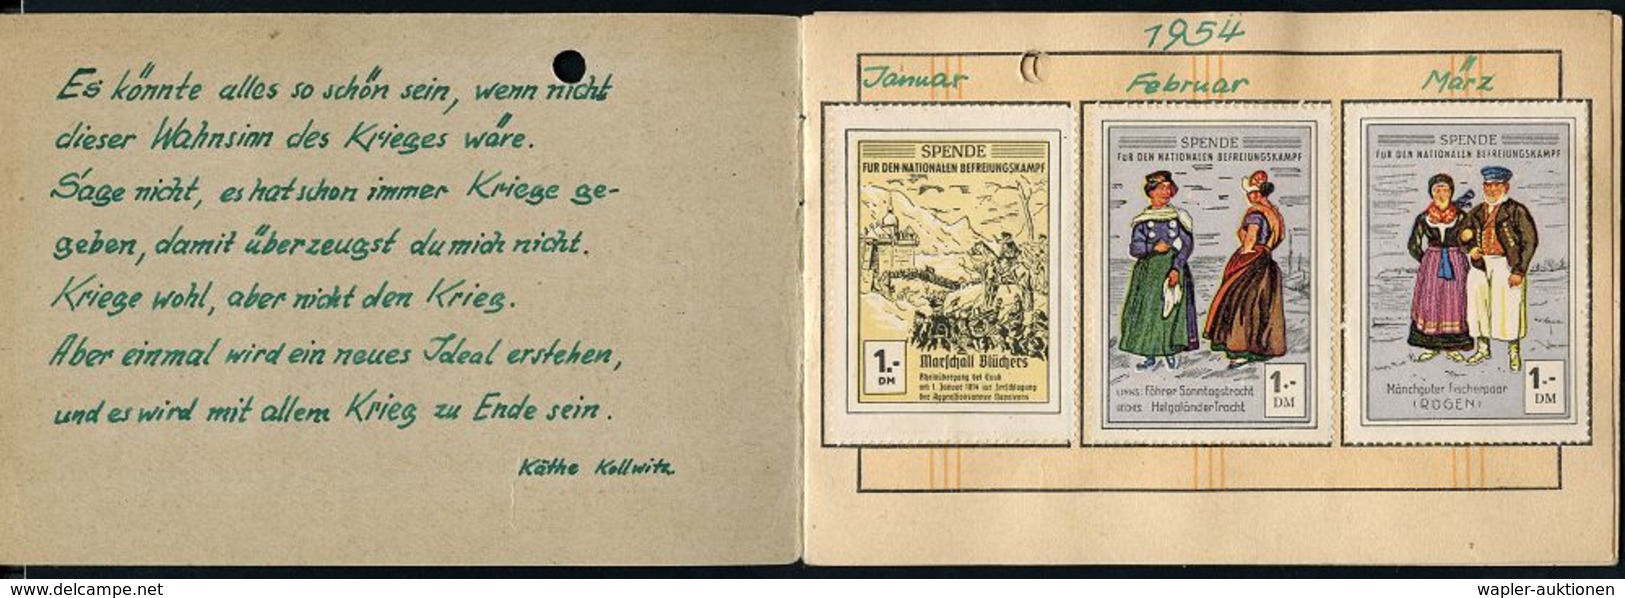 Es könnte alles so schön sein, wenn nicht
dieser Wahnsinn des Krieges wäre.
Sage nicht, es hat schon immer Kriege ge-
geben, damit überzeugst du mich nicht.
Kriege wohl, aber nicht den Krieg.
Aber einmal wird ein neues Ideal erstehen,
und es wird mit allem Krieg zu Ende sein.
Käthe Kollwitz
1954
Januar
SPENDE
FÜR DEN NATIONALEN BEFREIUNGSKAMPF
1.-
DM
Marschall Blüchers
Rheinübergang bei Caub
am 1. Januar 1814 zur Zerschlagung
der Aggressionsarmee Napoleons
Februar
SPENDE
FÜR DEN NATIONALEN BEFREIUNGSKAMPF
LINKS: Föhrer Sonntagstracht
RECHTS: Helgoländer Tracht
1.-
DM
März
SPENDE
FÜR DEN NATIONALEN BEFREIUNGSKAMPF
Mönchguter Fischerpaar
(RÜGEN)
1.-
DM
delcampe.net
wapler-auktionen